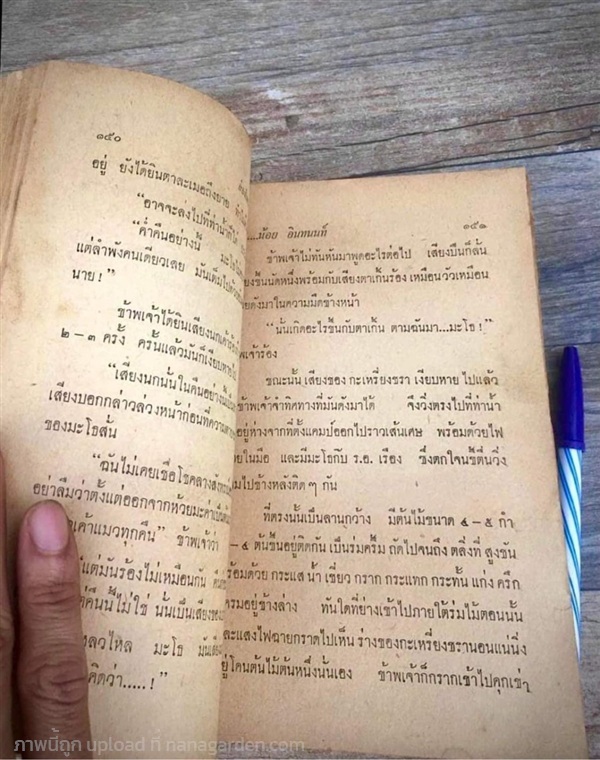 ๑๕๐
อยู่ ยังได้ยินตาละเมอถึงยาย
"อาจจะลงไปที่ท่าน้ำก็ได้
"ค่ำคืนอย่างนี้ มะโธ
แต่ลำพังคนเดียวเลย มันเต็มไปด้วย
นาย!"
ข้าพเจ้าได้ยินเสียงนกเค้าร้อง
๒–๓ ครั้ง ครั้นแล้วมันก็เงียบหาย
"เสียงนกนั้นในคืนอย่างนี้
เสียงบอกกล่าวล่วงหน้าก่อนที่ความตาย
ของมะโธสั่น
"ฉันไม่เคยเชื่อโชคลางสังหรณ์
อย่าลืมว่าตั้งแต่ออกจากห้วยมะค่า
เค้าแมวทุกคืน" ข้าพเจ้าว่า
แต่มันร้องไม่เหมือนกัน
คืนนี้ไม่ใช่ นั้นเป็นเสียงของ
เหลวไหล มะโธ มัน
คิดว่า.....!"
....น้อย อินทนนท์ ๑๕๑
ข้าพเจ้าไม่ทันหันมาพูดอะไรต่อไป เสียงปืนก็ลั่น
ขึ้นนัดหนึ่งพร้อมกับเสียงตาเก็นร้อง เหมือนวัวเหมือน
ดังมาในความมืดข้างหน้า
"นั้นเกิดอะไรขึ้นกับตาเก็น ตามฉันมา...มะโธ!"
ข้าพเจ้าร้อง
ขณะนั้น เสียงของ กะเหรี่ยงชรา เงียบหาย ไปแล้ว
ข้าพเจ้าจำทิศทางที่มันดังมาได้ จึงวิ่งตรงไปที่ท่าน้ำ
อยู่ห่างจากที่ตั้งแคมป์ออกไปราวเส้นเศษ พร้อมด้วยไฟ
ฉายในมือ และมีมะโธกับ ร.อ. เรือง ซึ่งตกใจนขี้ตื่นวิ่ง
ตามไปข้างหลังติด ๆ กัน
ที่ตรงนั้นเป็นลานกว้าง มีต้นไม้ขนาด ๔–๕ กำ
–๕ ต้นขึ้นอยู่ติดกัน เป็นร่มครึ้ม ถัดไปจนถึง ตลิ่งที่ สูงชัน
พร้อมด้วย กระแส น้ำ เชี่ยว กราก กระแทก กระทั้น แก่ง ครึก
โครมอยู่ข้างล่าง ทันใดที่ย่างเข้าไปภายใต้ร่มไม้ตอนนั้น
และแสงไฟฉายกราดไปเห็น ร่างของกะเหรี่ยงชรานอนแน่นิ่ง
อยู่โคนต้นไม้ต้นหนึ่งนั้นเอง ข้าพเจ้าก็กรากเข้าไปคุกเข่า
ภาพนี้ถูก upload ที่ nanagarden.com